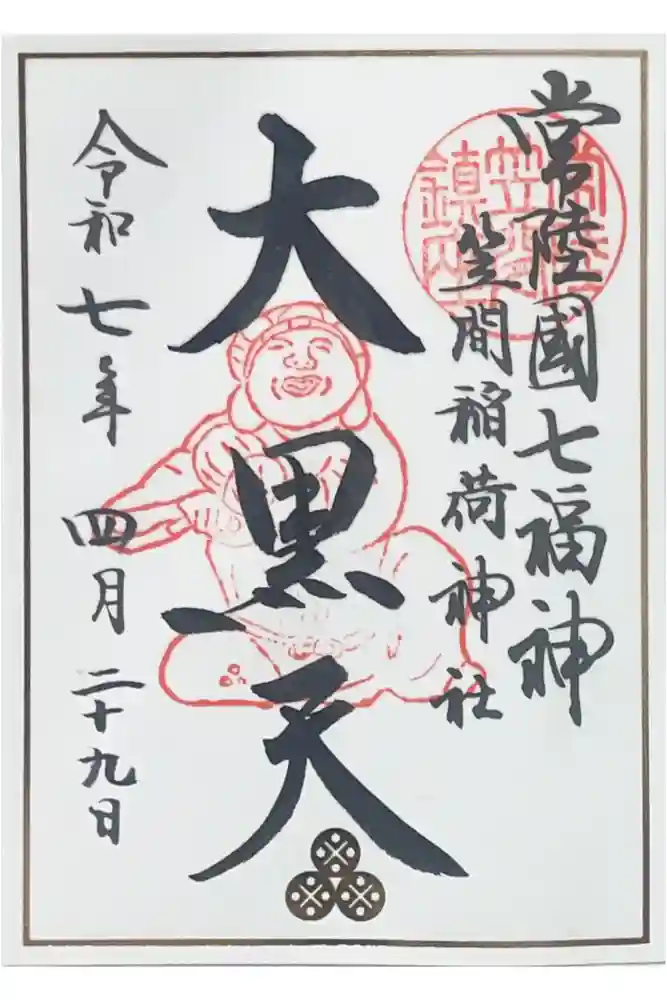 常陸國七福神
笠間稲荷神社
大黒天
令和七年 四月二十九日